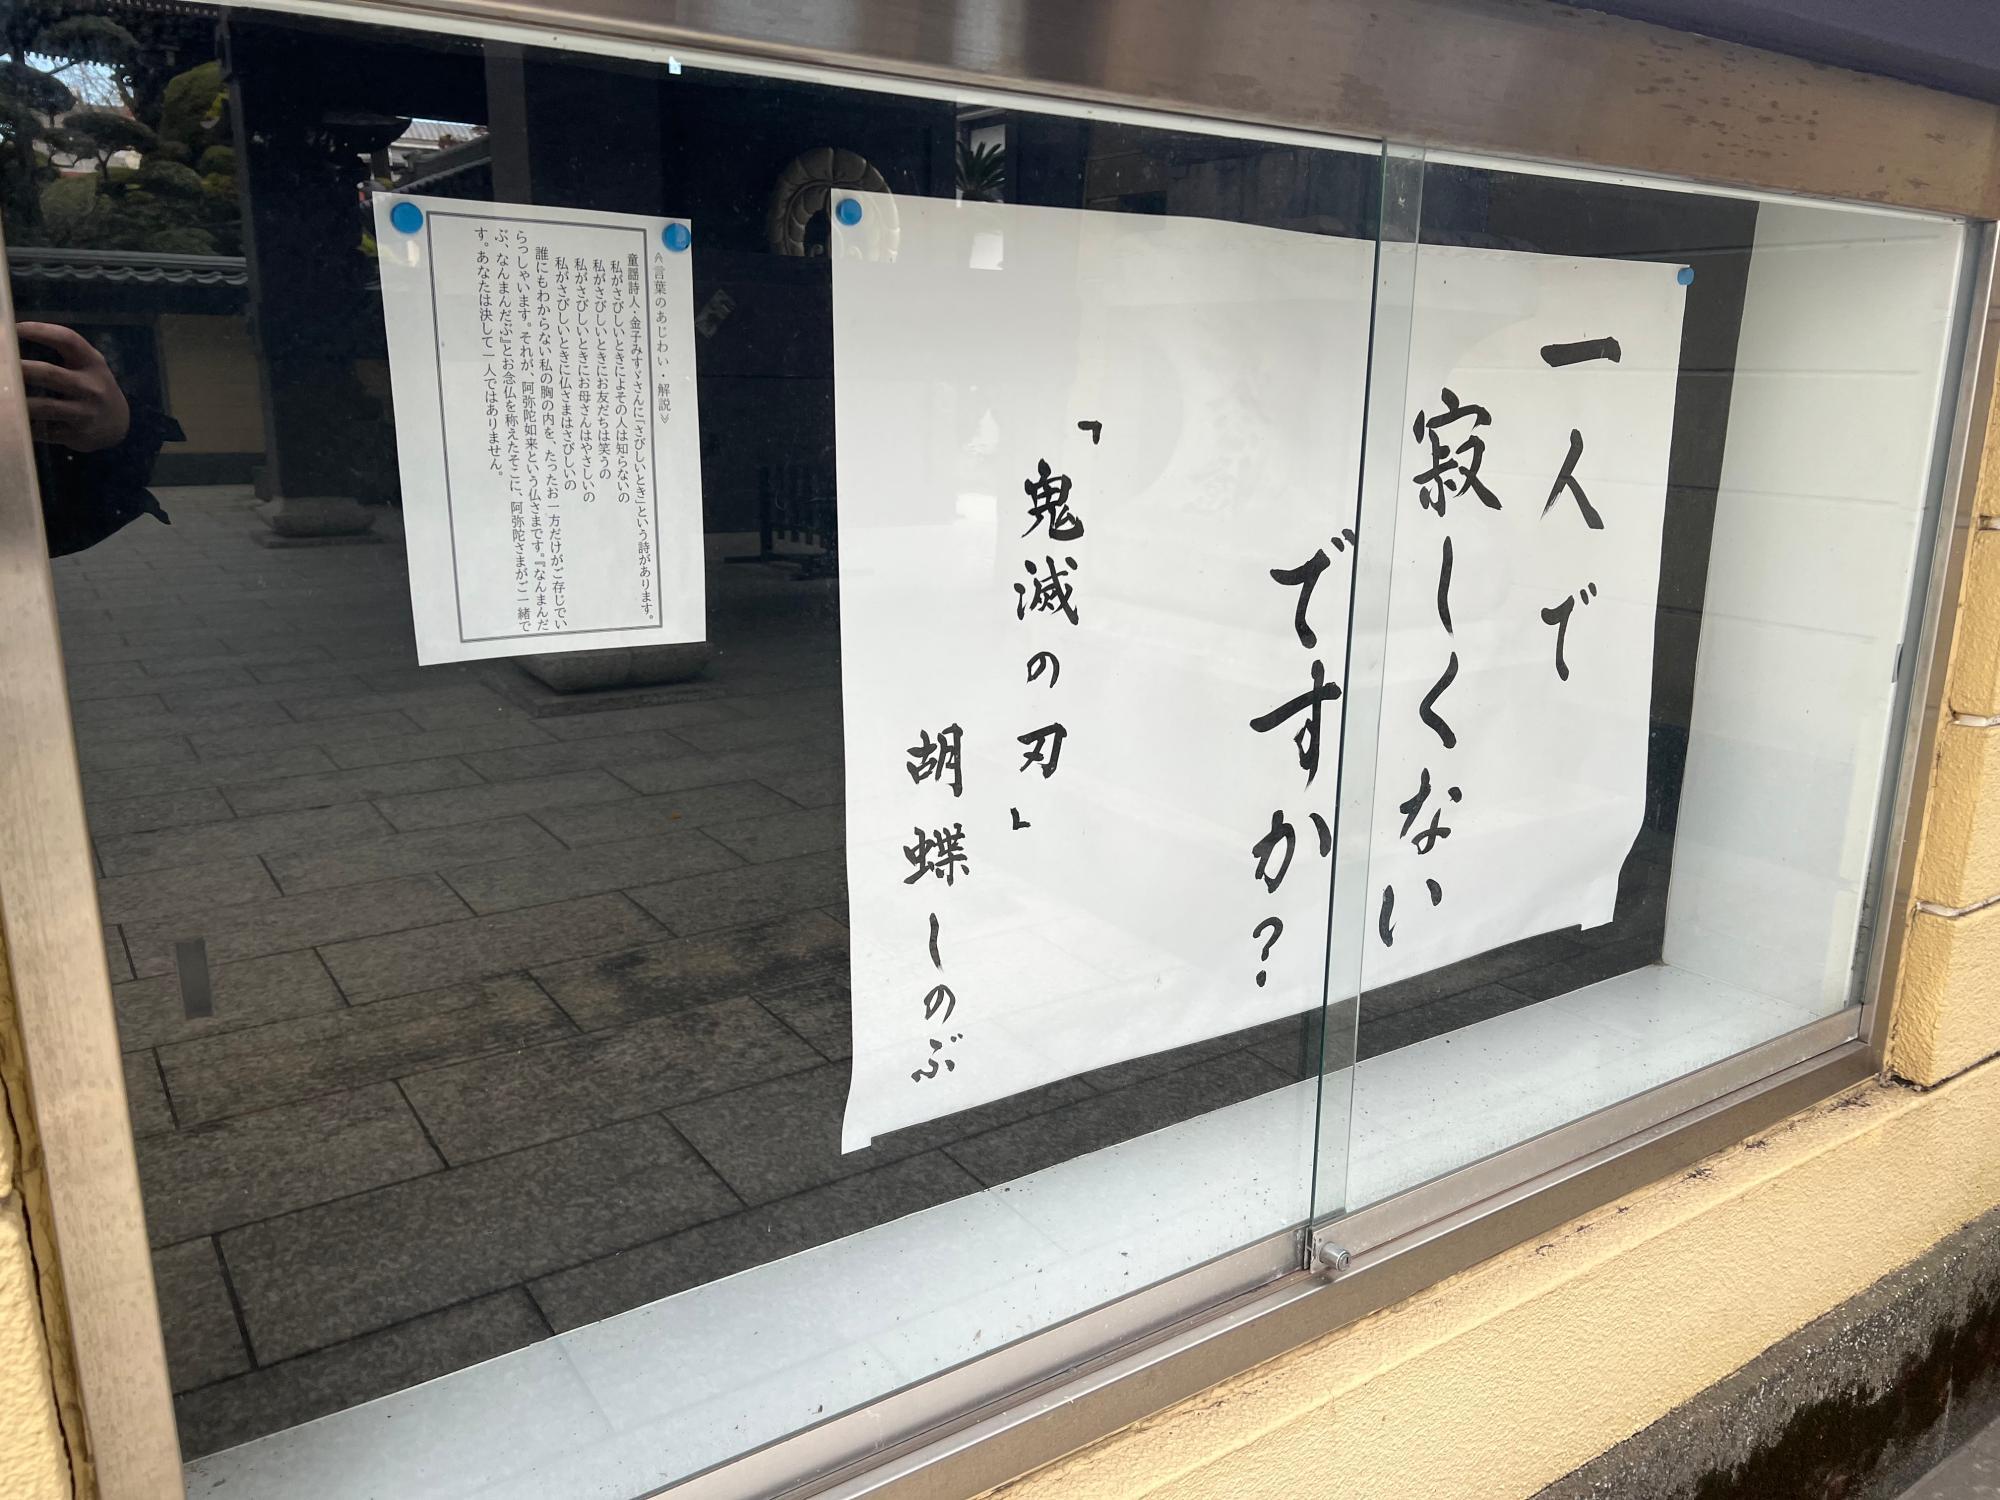 一人で
寂しくない
ですか?
「鬼滅の刃」
胡蝶しのぶ
≪言葉のあじわい・解説≫
童謡詩人・金子みすゞさんに「さびしいとき」という詩があります。
私がさびしいときによその人は知らないの
私がさびしいときにお友だちは笑うの
私がさびしいときにお母さんはやさしいの
私がさびしいときに仏さまはさびしいの
誰にもわからない私の胸の内を、たったお一方だけがご存じでい
らっしゃいます。それが、阿弥陀如来という仏さまです。『なんまんだ
ぶ、なんまんだぶ』とお念仏を称えたそこに、阿弥陀さまがご一緒で
す。あなたは決して一人ではありません。